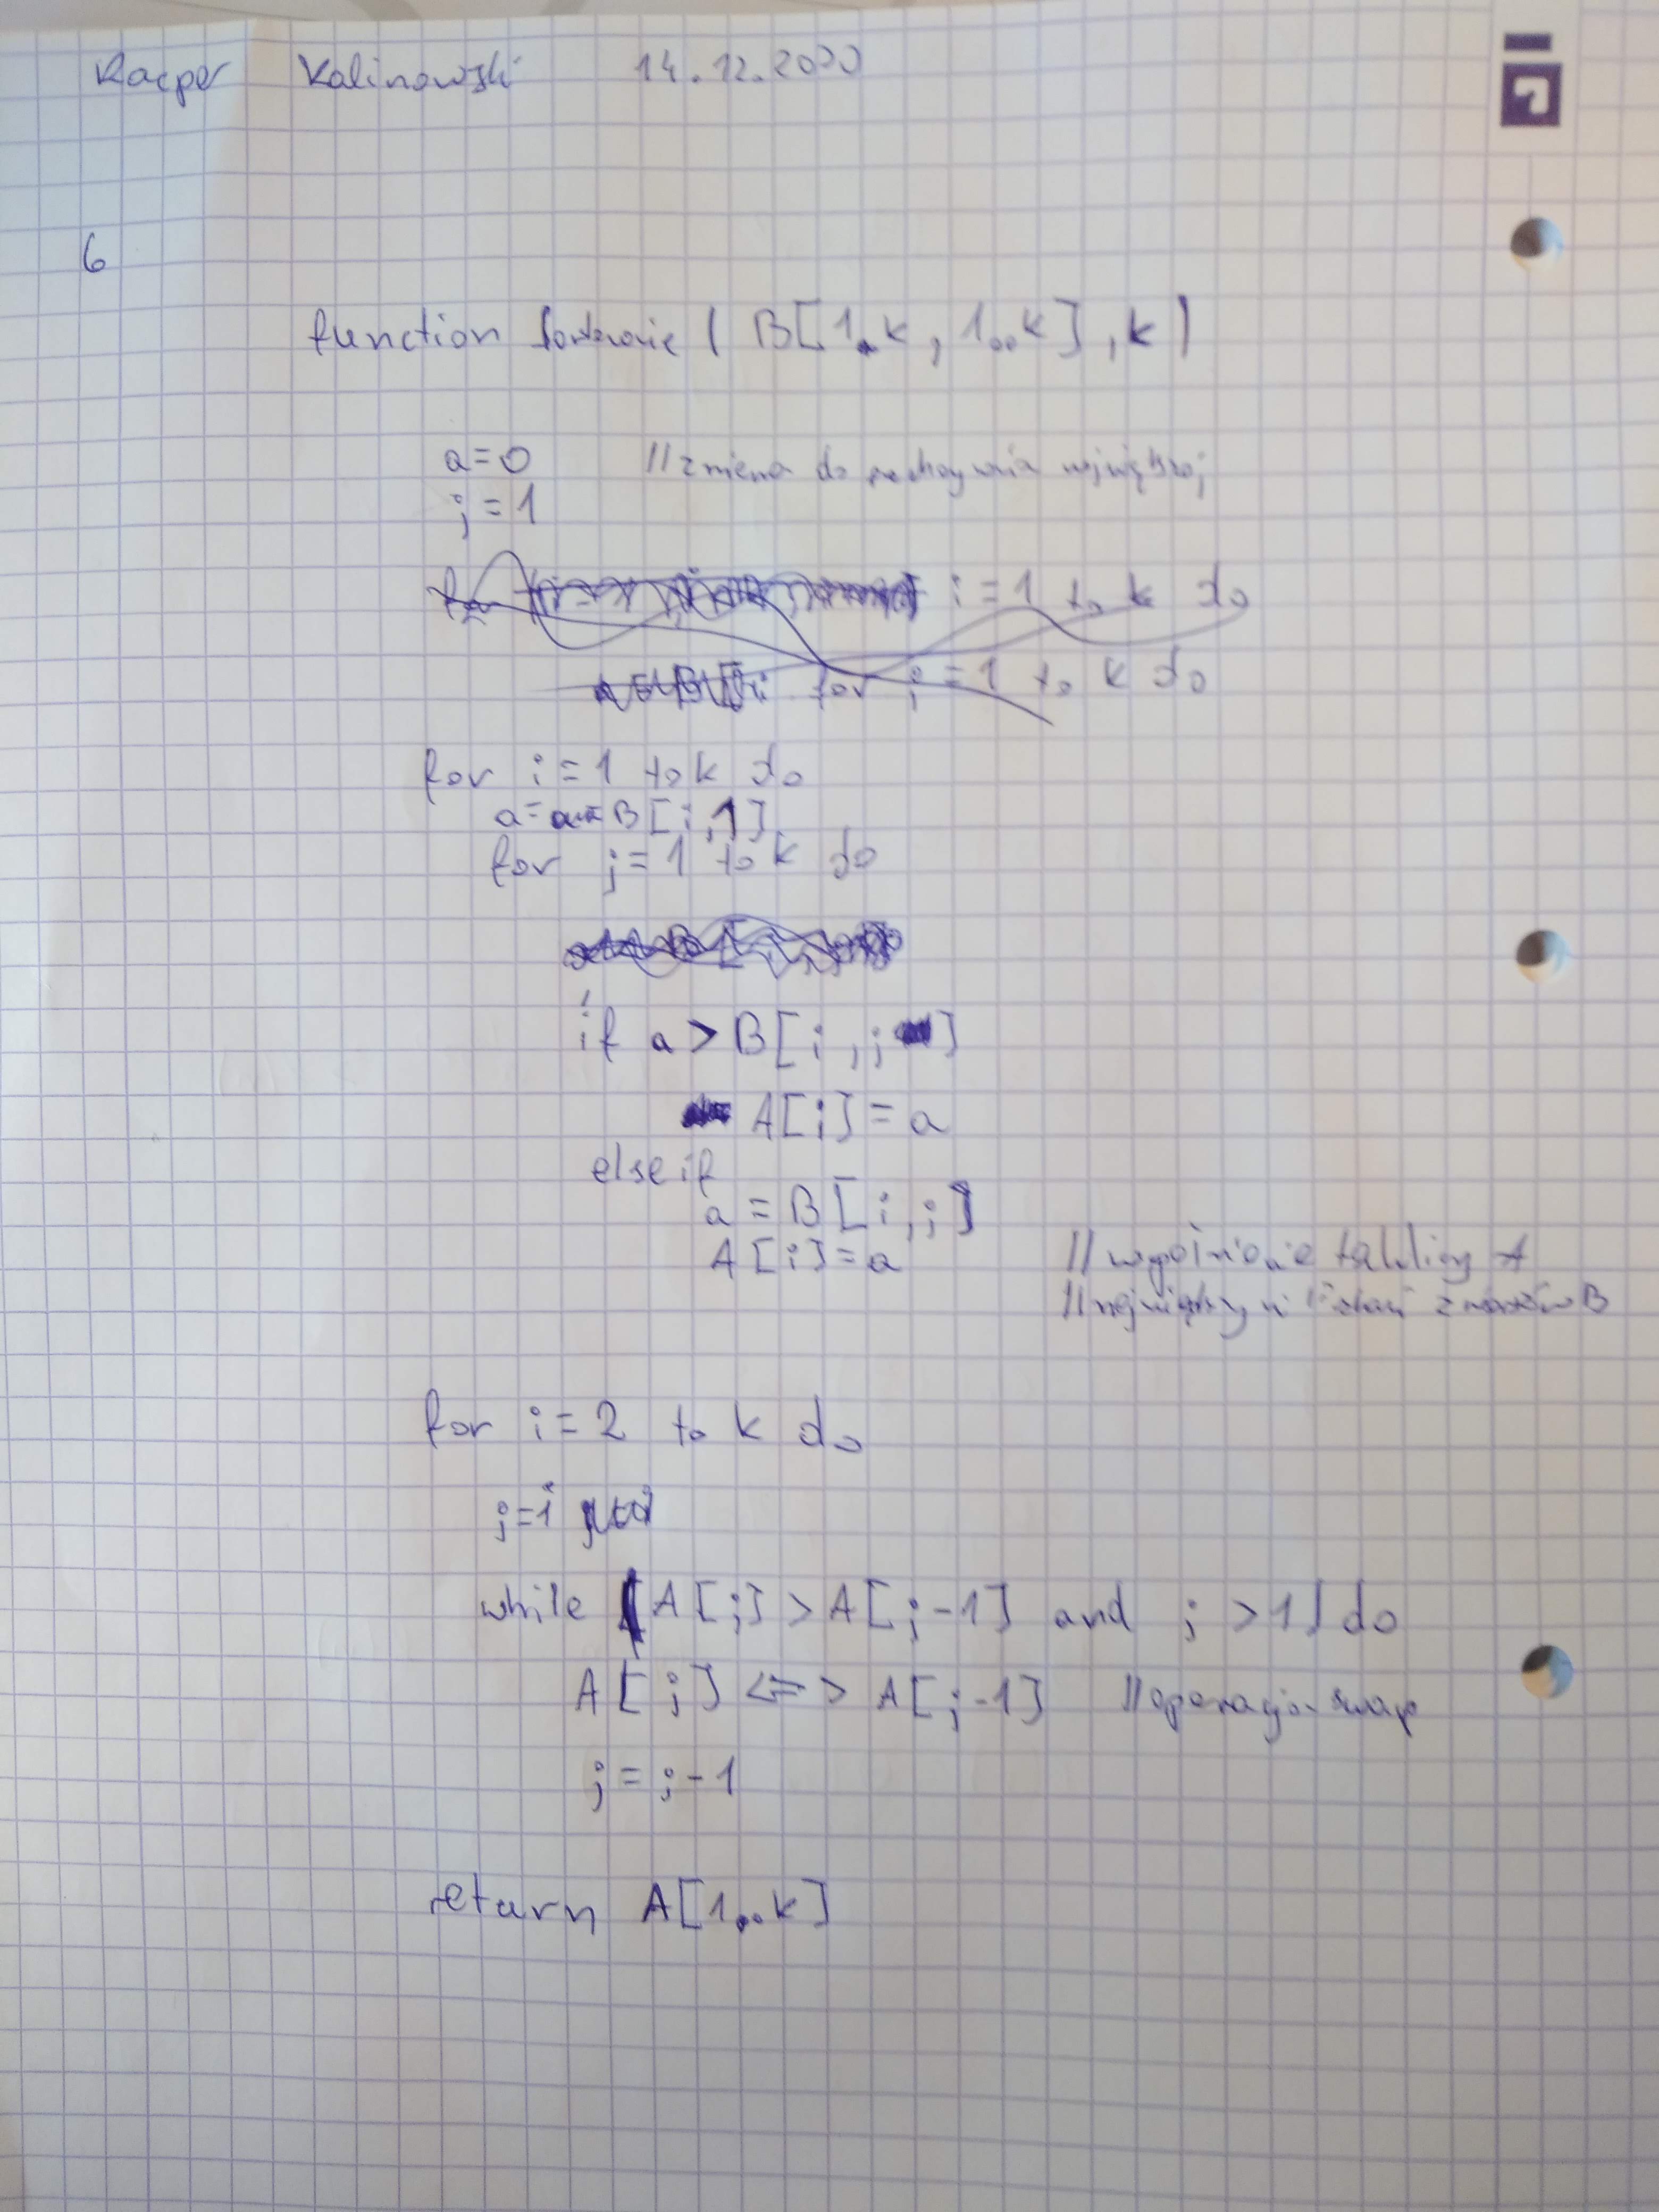 Kacper Kalinowski 14.12.2020
6
function Sortowanie ( B[1..k, 1..k], k)
a=0 //zmiena do przechowywania największej
j=1
i=1 to k do
for j=1 to k do
for i=1 to k do
a= B[i,1]
for j=1 to k do
if a > B[i,j]
A[i] = a
else if
a = B[i,j]
A[i]=a //wypełnienie tablicy A
//największymi z B
for i=2 to k do
j=i
while (A[j] > A[j-1] and j >1) do
A[j] <=> A[j-1] //operacja swap
j=j-1
return A[1..k]